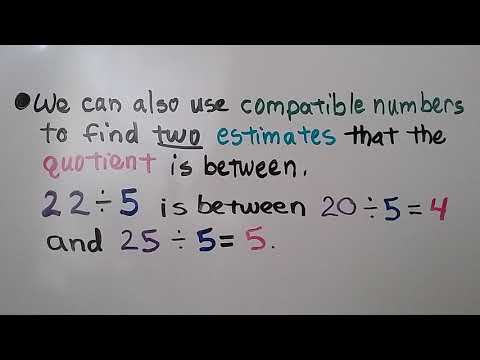 •We can also use compatible numbers
to find two estimates that the
quotient is between.
22÷5 is between 20÷5=4
and 25÷5=5.